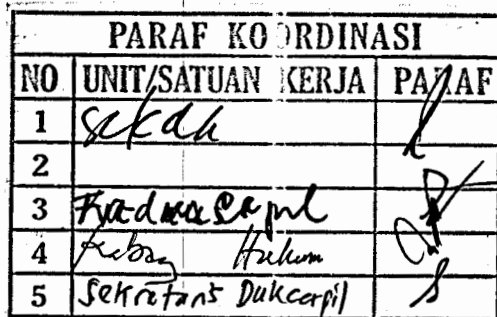 PARAF KOORDINASI
NO UNIT/SATUAN KERJA PARAF
1 Sekda
2
3 Kadis
4 Kabag Hukum
5 Sekretaris Dukcapil